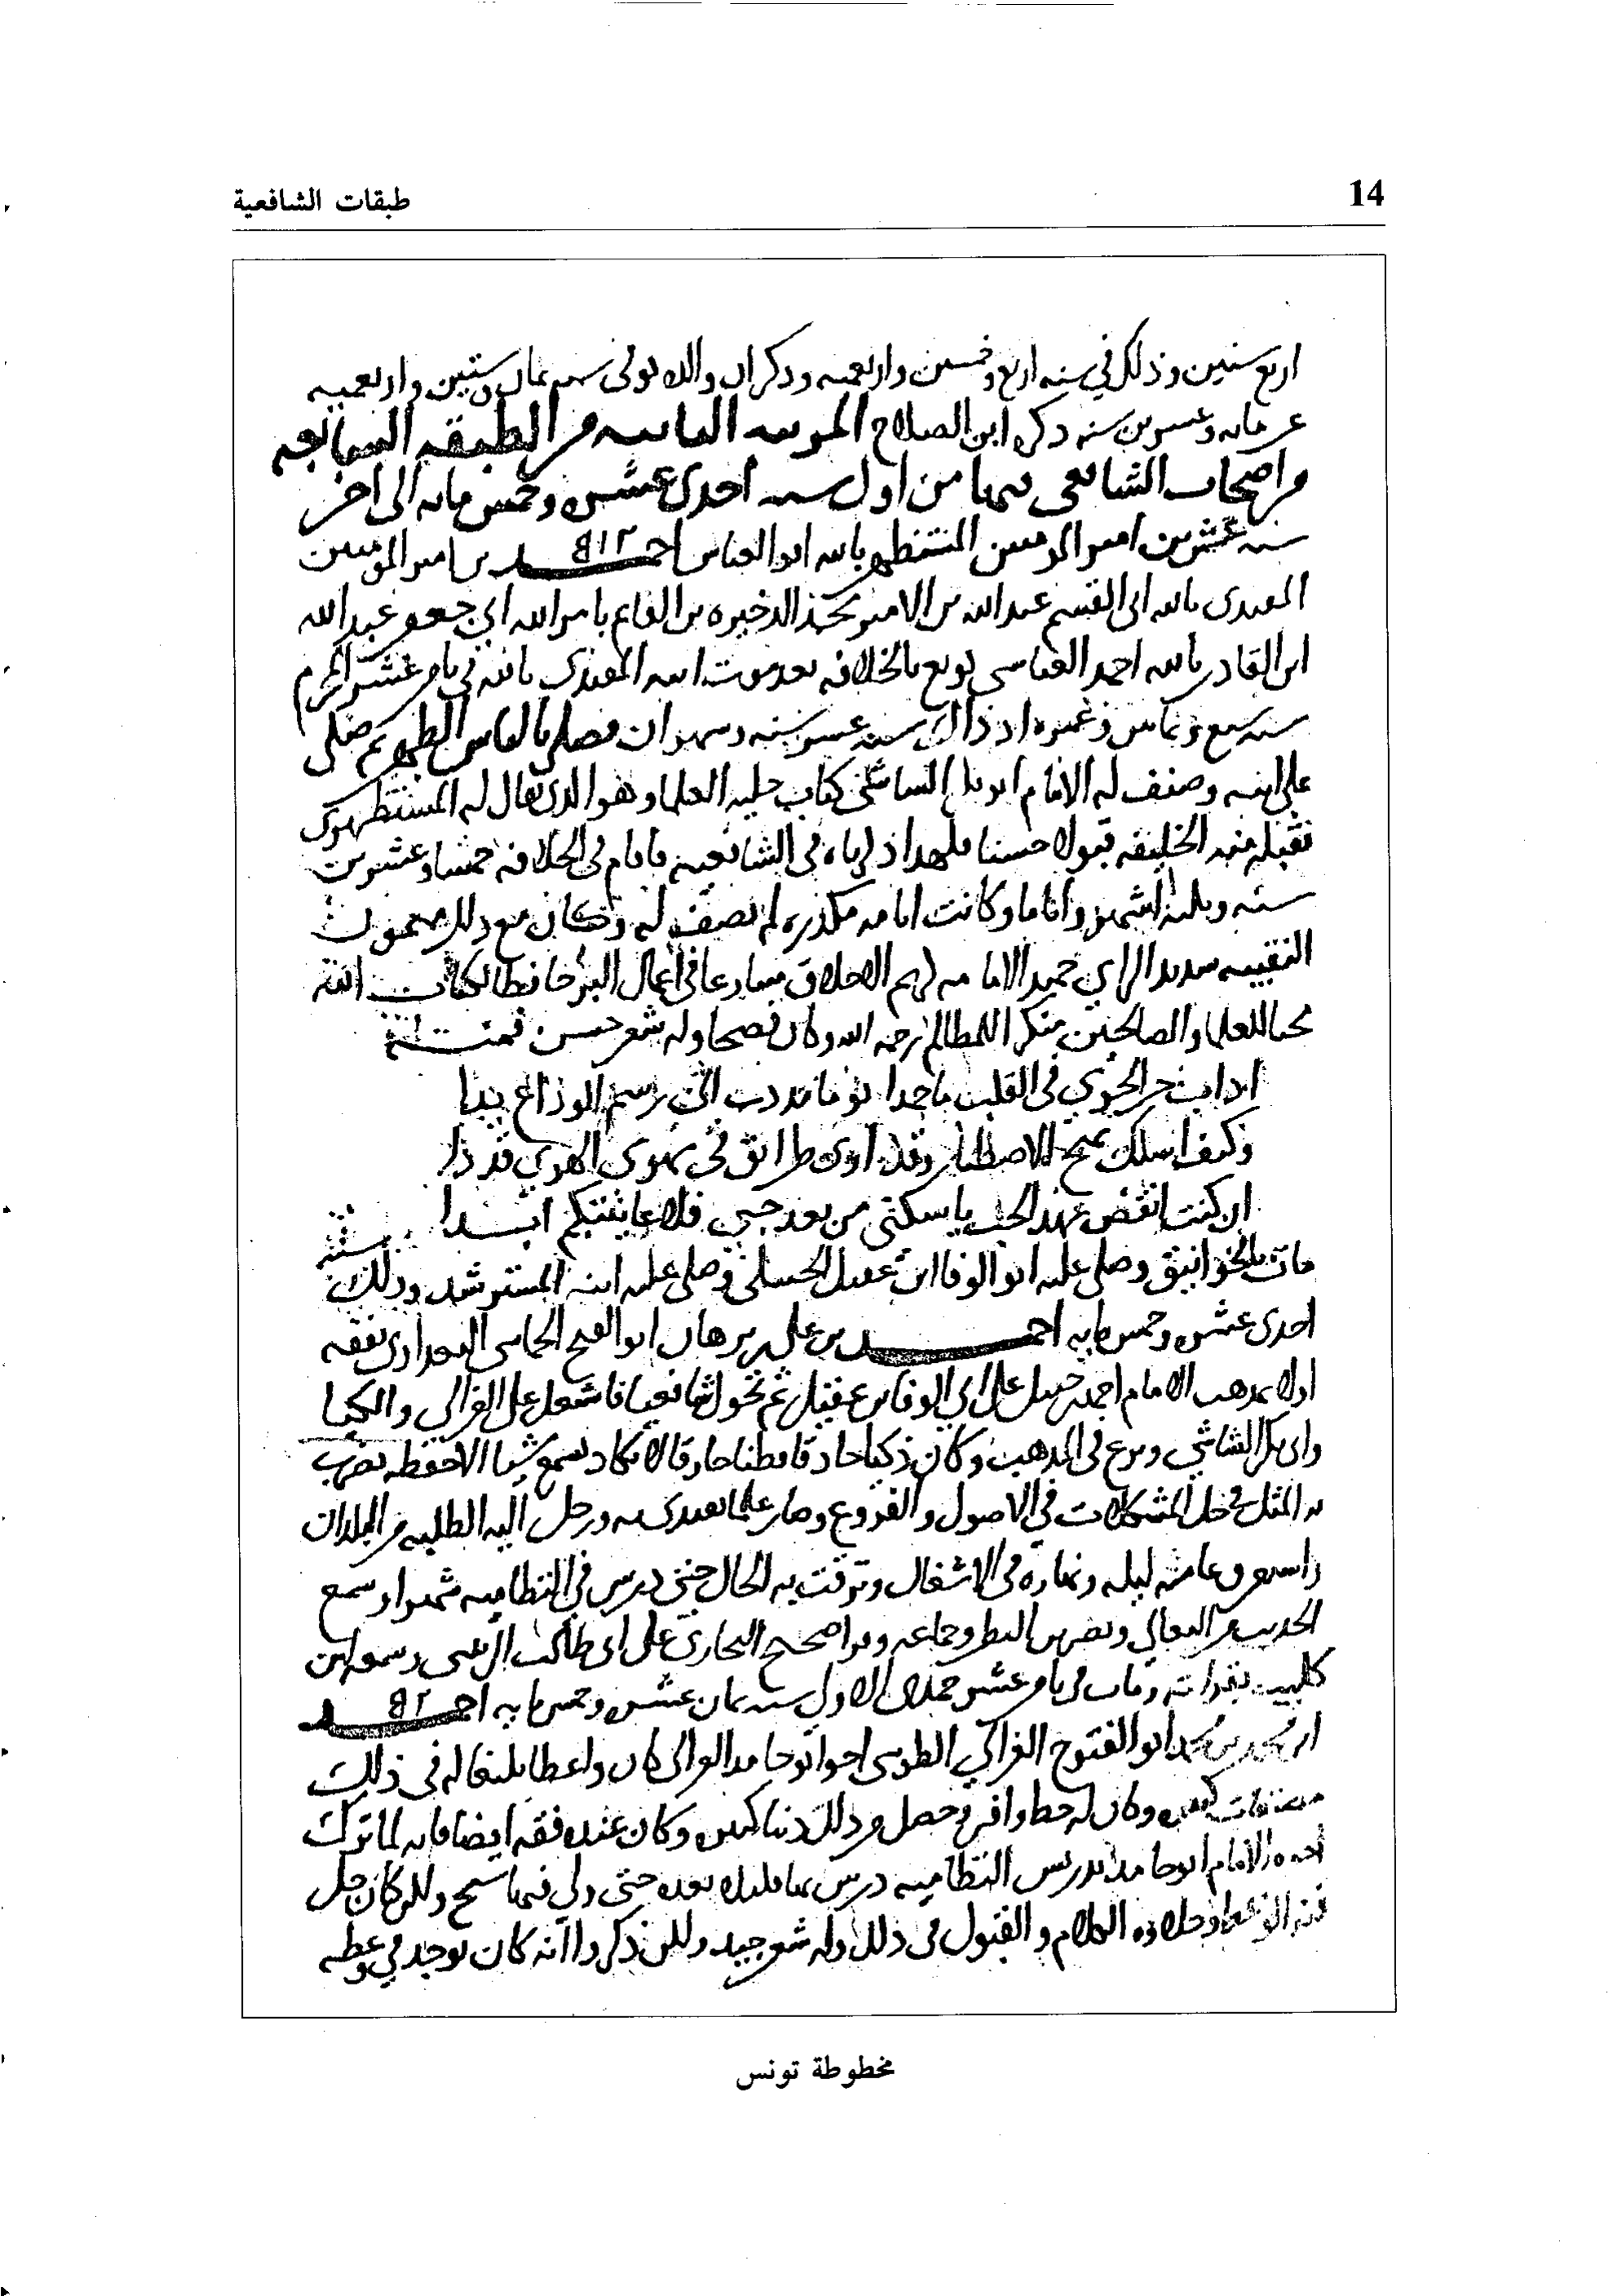 14
طبقات الشافعية
اربع سنين وذلك في سنه اربع وخمسين واربعميه وذكر ان والده توفي سنه ثمان وستين واربعميه
عن مايه وعشرين سنه ذكره ابن الصلاح المرتبه الثانيه من الطبقه السابعه
من اصحاب الشافعي فيها من اول سنه احدى عشره وخمس مايه الى اخر
سنه عشرين امير المومنين المستظهر بالله ابو العباس احمد ٥١٢ بن امير المومنين
المقتدى بالله ابى القسم عبد الله بن الامير محمد الذخيره بن القايم بامر الله ابي جعفر عبد الله
ابن القادر بالله احمد العباسى بويع بالخلافه بعد موت ابيه المقتدى بالله في ثامن عشر المحرم
سنه سبع وثمانين وعمره اذ ذاك ست عشره سنه وشهران فصلى بالناس الظهر ثم صلى
على ابيه وصنف له الامام ابو بكر الشاشي كتاب حليه العلما وهو الذى يقال له المستظهرى
فقبله منه الخليفه قبولا حسنا فلهذا ذكرناه في الشافعيه فاقام في الخلافه خمسا وعشرين
سنه وثلثه اشهر واياما وكانت ايامه مكدره لم تصف له وكان مع ذلك ميمون
النقيبه سديد الراي حميد الايام كريم الاخلاق مسارعا في اعمال البر حافظا لكتاب الله
محبا للعلما والصالحين منكرا للمظالم رحمه الله وكان فصيحا وله شعر حسن فمنه
اذاب حر الجوي في القلب ما جمدا يوما مددت الى رسم الوداع يدا
وكيف اسلك نهج الاصطبار وقد ارى طرائق في مهوى الهوي قددا
ان كنت انقض عهد الحب يا سكنى من بعد حبي فلا عاينتكم ابدا
مات بالخوانيق وصلى عليه ابو الوفا ابن عقيل الحنبلي وصلى عليه ابنه المسترشد وذلك سنه
احدى عشره وخمس مايه احمد بن علي بن برهان ابو الفتح الحمامى البغدادى تفقه
اولا بمذهب الامام احمد بن حنبل على ابي الوفا بن عقيل ثم تحول شافعيا فاشتغل على الغزالي والكيا
وابى بكر الشاشي وبرع في المذهب وكان ذكيا حاذقا فطنا خارقا لا يكاد يسمع شيا الا حفظه يضرب
به المثل في حل المشكلات في الاصول والفروع وصار علما يقتدى به ورحل اليه الطلبه من البلدان
واستغرق عامه ليله ونهاره في الاشغال وترقت به الحال حتى درس في النظاميه شهرا وسمع
الحديث من النعالي ونصر بن البطر وجماعه وقرا صحيح البخاري على ابى طالب الزينبى وسمعه ابن
كليب بقراته ومات في ثامن عشر جمادى الاول سنه ثمان عشره وخمس مايه احمد ٥٢٠
ابن محمد بن محمد ابو الفتوح الغزالي الطوسى اخو ابو حامد الغزالى كان واعظا بليغا له في ذلك
مصنفات كثيره وكان له حظ وافر وحصل من ذلك دنيا كثيره وكان عنده فقه ايضا فانه لما ترك
اخوه الامام ابو حامد تدريس النظاميه درس بها قليلا بعده حتى ولى فيها وللن كان جل
فنه الوعظ وحلاوه الكلام والقبول في ذلك وله شعر جيد وللن ذكروا انه كان يوجد في وعظه
مخطوطة تونس